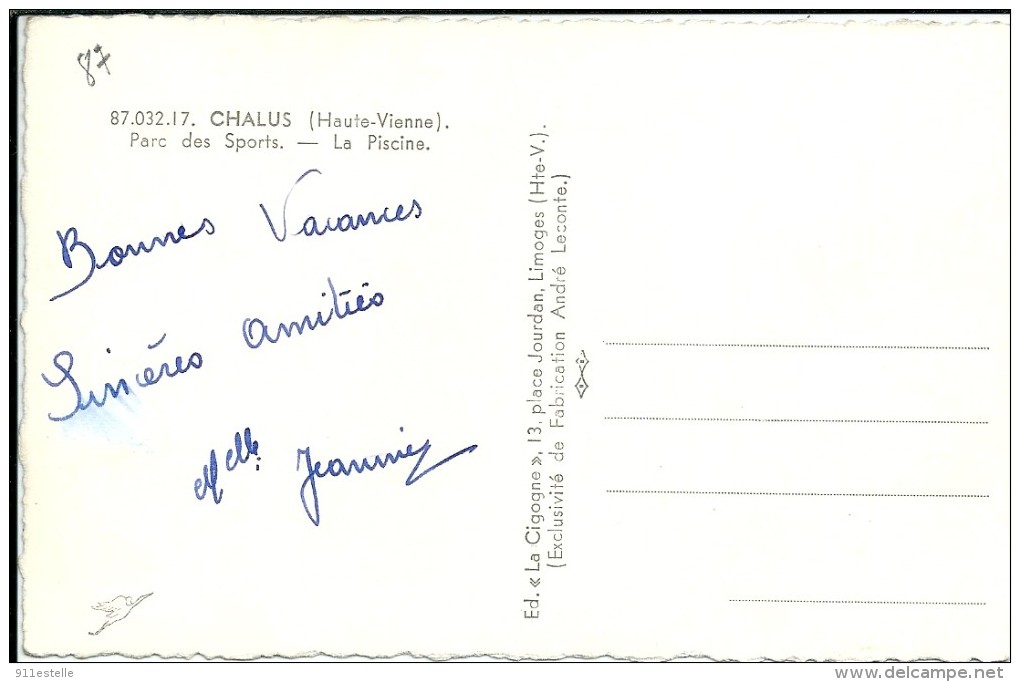 87
87.032.17. CHALUS (Haute-Vienne).
Parc des Sports. — La Piscine.
Bonnes Vacances
Sincères amitiés
Melle Jeannie
Ed. « La Cigogne », 13, place Jourdan, Limoges (Hte-V.).
(Exclusivité de Fabrication André Leconte.)
911estelle
www.delcampe.net